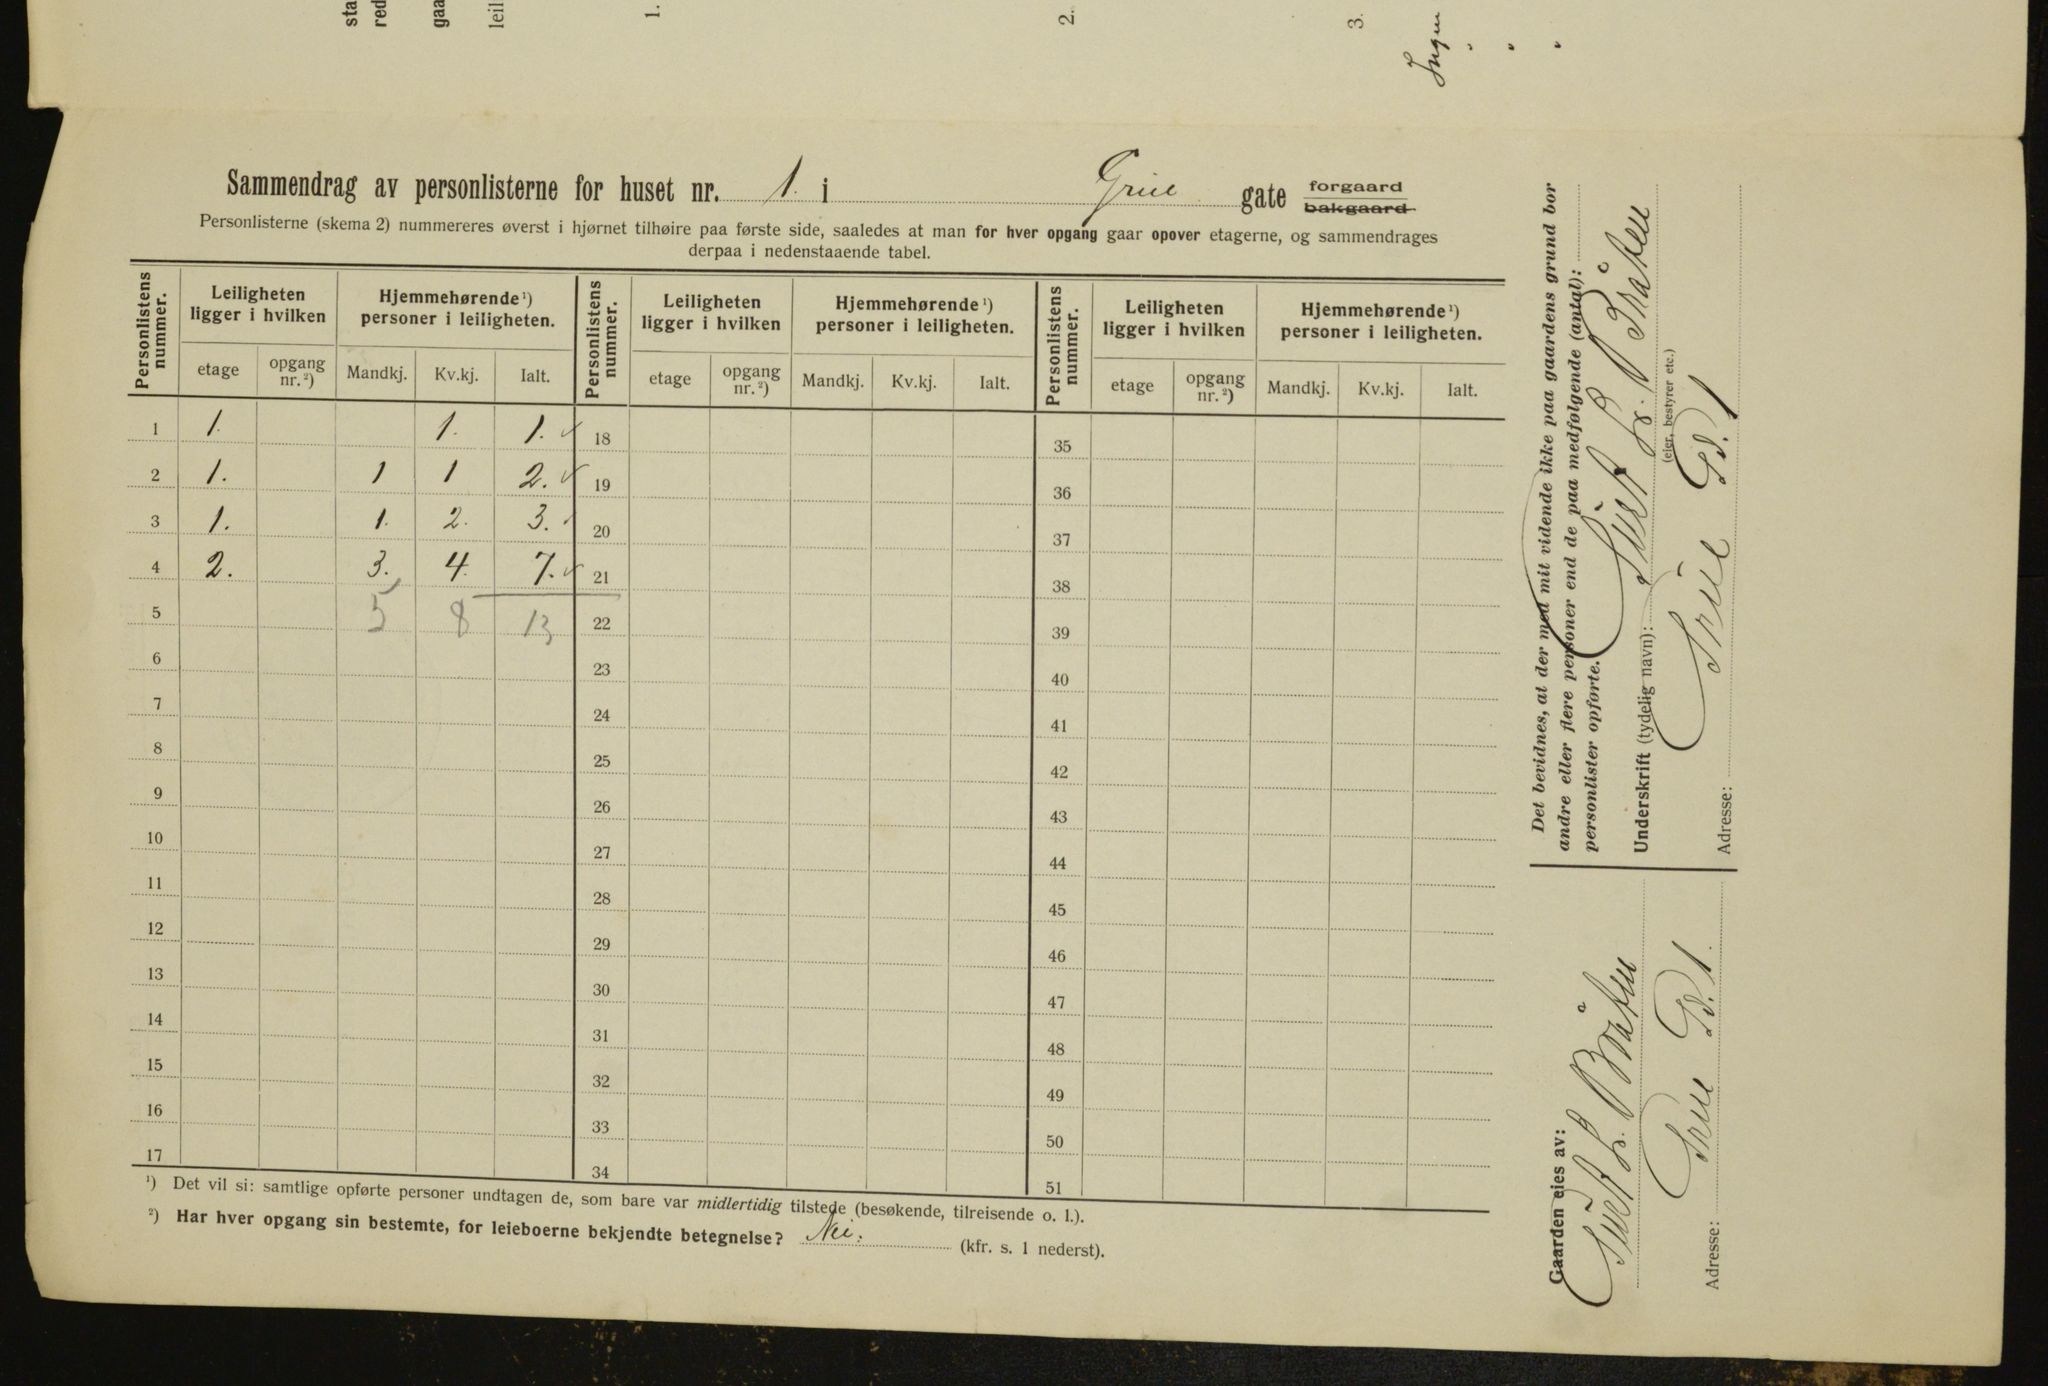 sta
red
gaa
leil
1.
2.
3.
Ingen
" " "
Sammendrag av personlisterne for huset nr. 1. i Grüe gate forgaard
bakgaard
Personlisterne (skema 2) nummereres øverst i hjørnet tilhøire paa første side, saaledes at man for hver opgang gaar opover etagerne, og sammendrages
derpaa i nedenstaaende tabel.
Personlistens nummer. Leiligheten ligger i hvilken Hjemmehørende ¹) personer i leiligheten. Personlistens nummer. Leiligheten ligger i hvilken Hjemmehørende ¹) personer i leiligheten. Personlistens nummer. Leiligheten ligger i hvilken Hjemmehørende ¹) personer i leiligheten.
etage opgang nr. ²) Mandkj. Kv.kj. Ialt. etage opgang nr. ²) Mandkj. Kv.kj. Ialt. etage opgang nr. ²) Mandkj. Kv.kj. Ialt.
1 1. 1. 1. ✓ 18 35
2 1. 1 1 2. ✓ 19 36
3 1. 1. 2. 3. ✓ 20 37
4 2. 3. 4. 7. ✓ 21 38
5 5 8 13 22 39
6 23 40
7 24 41
8 25 42
9 26 43
10 27 44
11 28 45
12 29 46
13 30 47
14 31 48
15 32 49
16 33 50
17 34 51
¹) Det vil si: samtlige opførte personer undtagen de, som bare var midlertidig tilstede (besøkende, tilreisende o. l.).
²) Har hver opgang sin bestemte, for leieboerne bekjendte betegnelse? Nei. (kfr. s. 1 nederst).
Det bevidnes, at der med mit vidende ikke paa gaardens grund bor
andre eller flere personer end de paa medfølgende (antal):
personlister opførte.
Underskrift (tydelig navn): Sivert L. Bråten
(eier, bestyrer etc.)
Adresse: Grüe Gd. 1
Gaarden eies av:
Sivert L. Bråten
Adresse: Grüe Gd. 1.